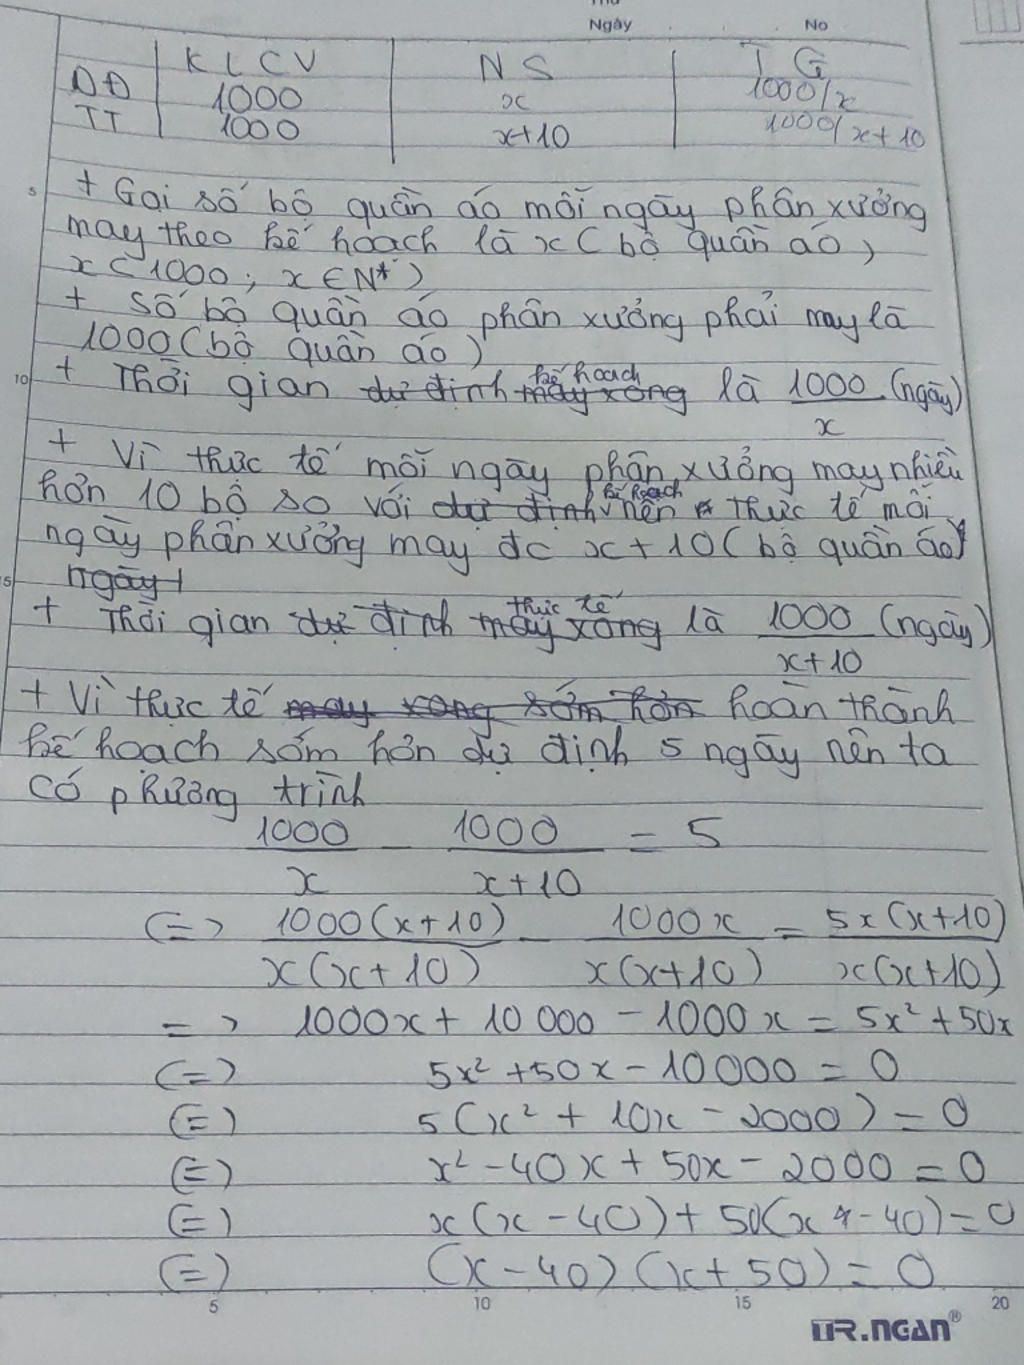 Thứ
Ngày No
KLCV NS TG
DĐ 1000 x 1000/x
TT 1000 x+10 1000/x+10
+ Gọi số bộ quần áo mỗi ngày phân xưởng
may theo kế hoạch là x (bộ quần áo,
x<1000; x∈N*)
+ Số bộ quần áo phân xưởng phải may là
1000 (bộ quần áo)
+ Thời gian dự định may xong kế hoạch là 1000/x (ngày)
+ Vì thực tế mỗi ngày phân xưởng may nhiều
hơn 10 bộ so với dự định kế hoạch nên thực tế mỗi
ngày phân xưởng may đc x+10 (bộ quần áo)
ngày)
+ Thời gian dự định may xong thực tế là 1000/x+10 (ngày)
+ Vì thực tế may xong sớm hơn hoàn thành
kế hoạch sớm hơn dự định 5 ngày nên ta
có phương trình
1000/x - 1000/x+10 = 5
(=> 1000(x+10)/x(x+10) - 1000x/x(x+10) = 5x(x+10)/x(x+10)
=> 1000x + 10 000 - 1000x = 5x² + 50x
(=) 5x² + 50x - 10000 = 0
(=) 5(x² + 10x - 2000) = 0
(=) x² - 40x + 50x - 2000 = 0
(=) x(x - 40) + 50(x - 40) = 0
(=) (x - 40)(x + 50) = 0
5 10 15 20
TR.NGAN®